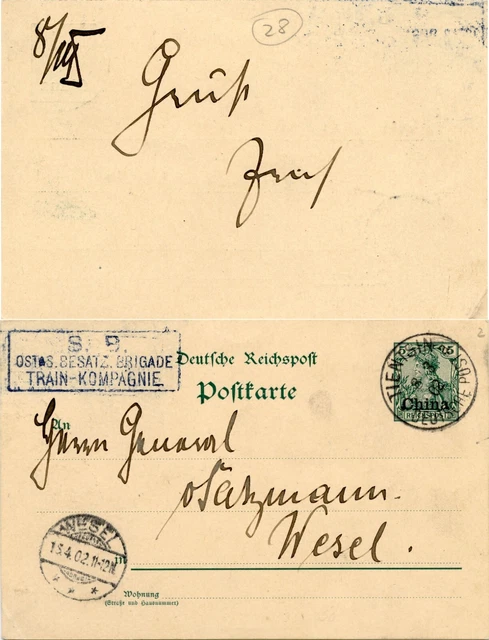 28
Gruß
S. B.
OSTAS. BESATZ. BRIGADE
TRAIN-KOMPAGNIE.
Deutsche Reichspost
Postkarte
TIENTSIN
China
REICHSPOST
An
Herrn General
Wesel.
WESEL
13.4.02.11-12N
in
Wohnung
(Straße und Hausnummer)
2